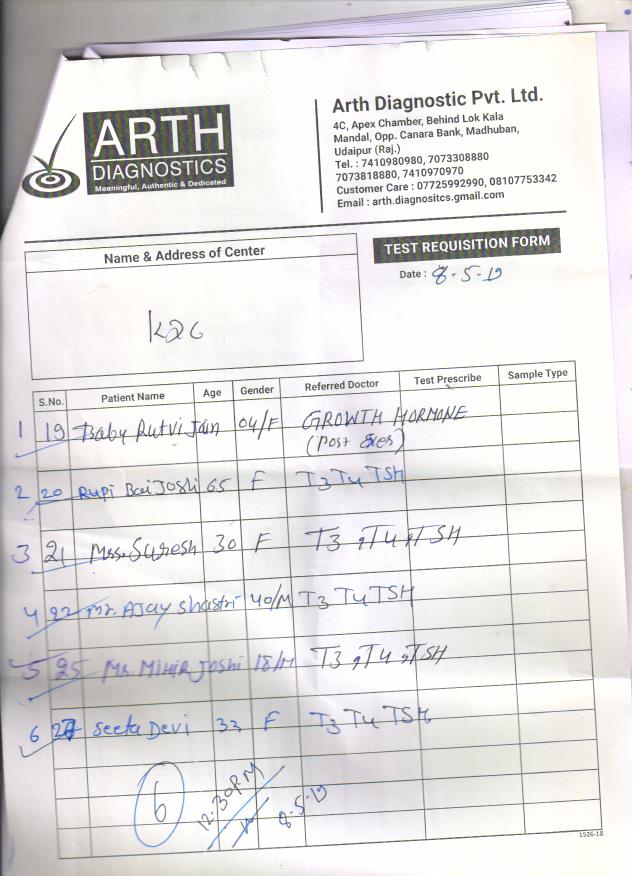 ARTH
DIAGNOSTICS
Meaningful, Authentic & Dedicated
Arth Diagnostic Pvt. Ltd.
4C, Apex Chamber, Behind Lok Kala
Mandal, Opp. Canara Bank, Madhuban,
Udaipur (Raj.)
Tel. : 7410980980, 7073308880
7073818880, 7410970970
Customer Care : 07725992990, 08107753342
Email : arth.diagnositcs.gmail.com
Name & Address of Center
TEST REQUISITION FORM
Date : 8-5-19
S.No. Patient Name Age Gender Referred Doctor Test Prescribe Sample Type
1 19 Baby Rutvi Jain 04/F GROWTH HORMONE
(Post Exes)
2 20 Rupi Bai Joshi 65 F T3 T4 TSH
3 21 Mrs. Suresh 30 F T3, T4, TSH
4 22 Mr. AJay Shastri 40/M T3 T4 TSH
5 25 Mr. MIHIR JOShi 18/M T3, T4, TSH
6 27 Seeta Devi 33 F T3 T4 TSH
6 12:30PM 8-5-19
1526-18